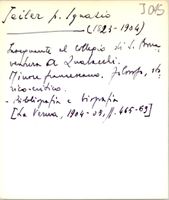 J 015
Jeiler p. Ignazio
(1823-1904)
Insegnante al collegio di S. Bona-
ventura a Quaracchi.
Minore francescano, filosofo, sto-
rico-critico.
- Bibliografia e biografia
[La Verna, 1904-05, p. 465-69]